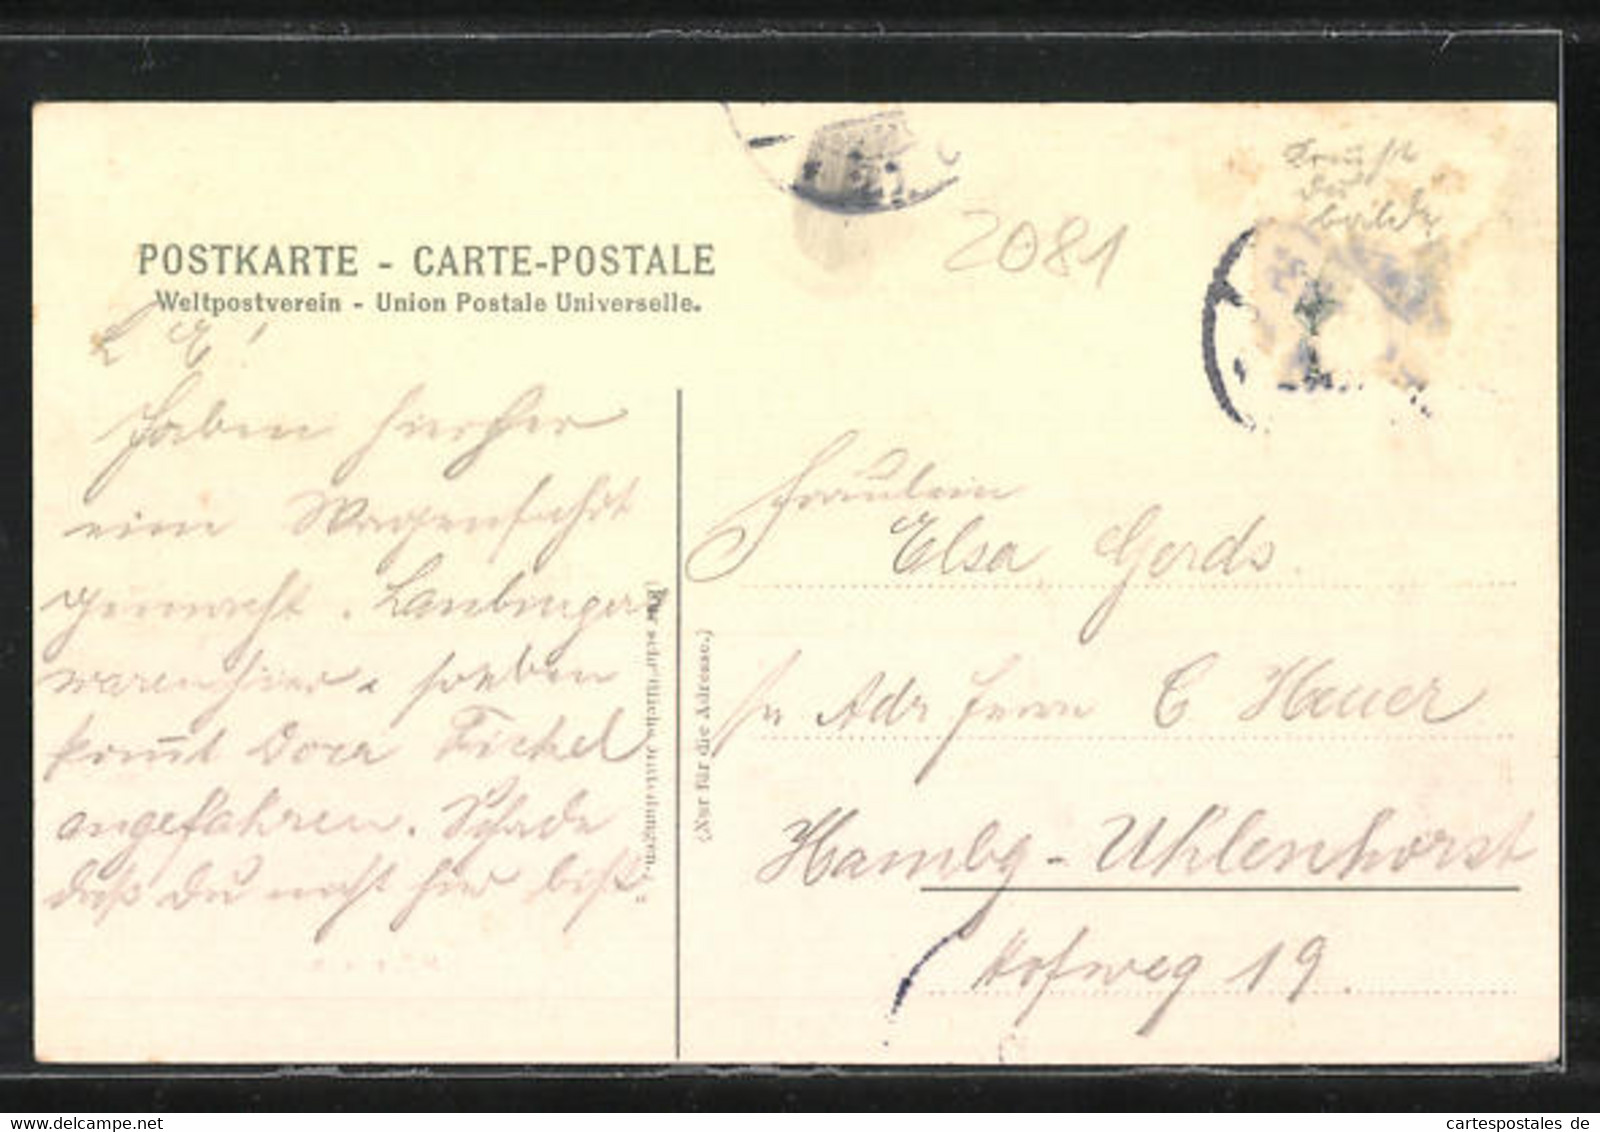 POSTKARTE - CARTE-POSTALE
Weltpostverein - Union Postale Universelle.
2081
L E!
Haben hierher
eine Wagenfahrt
gemacht. Laubinger
waren hier. soeben
kom̅t Dora Fickel
angefahren. Schade
daß du nicht hier bist.
(Für schriftliche Mitteilungen.)
(Nur für die Adresse.)
Fräulein
Elsa Gerds.
Adr Herrn C Heuer
Hambg-Uhlenhorst
Hofweg 19.
www.cartespostales.de